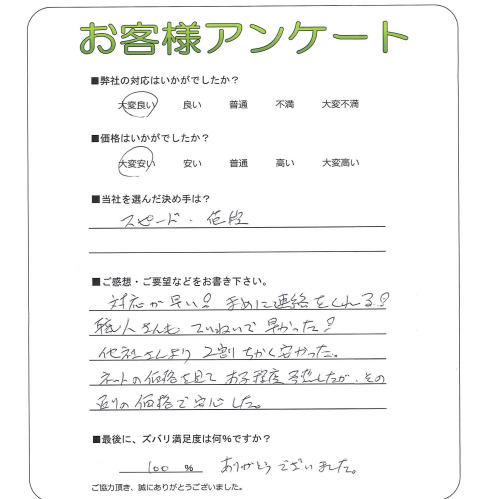 お客様アンケート
■弊社の対応はいかがでしたか？
大変良い 良い 普通 不満 大変不満
■価格はいかがでしたか？
大変安い 安い 普通 高い 大変高い
■当社を選んだ決め手は？
スピード・値段
■ご感想・ご要望などをお書き下さい。
対応が早い！手めに連絡をくれる！
職人さんもていねいで早かった！
他社さんより2割ちかく安かった。
ネットの価格を見てある程度予想したが、その
通りの価格で安心した。
■最後に、ズバリ満足度は何%ですか？
100 % ありがとうございました。
ご協力頂き、誠にありがとうございました。